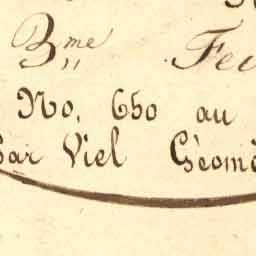 3me Feu
No. 650 au
Par Viel Géomè